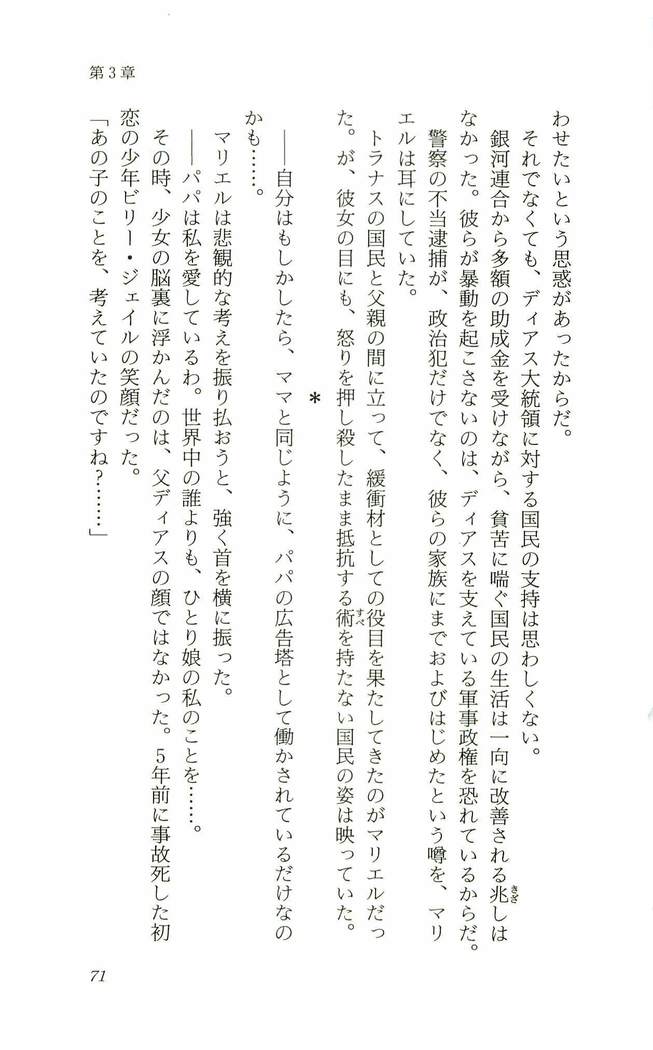 第3章
わせたいという思惑があったからだ。
それでなくても、ディアス大統領に対する国民の支持は思わしくない。
銀河連合から多額の助成金を受けながら、貧苦に喘ぐ国民の生活は一向に改善される兆きざしは
なかった。彼らが暴動を起こさないのは、ディアスを支えている軍事政権を恐れているからだ。
警察の不当逮捕が、政治犯だけでなく、彼らの家族にまでおよびはじめたという噂を、マリ
エルは耳にしていた。
トラナスの国民と父親の間に立って、緩衝材としての役目を果たしてきたのがマリエルだっ
た。が、彼女の目にも、怒りを押し殺したまま抵抗する術すべを持たない国民の姿は映っていた。
*
――自分はもしかしたら、ママと同じように、パパの広告塔として働かされているだけなの
かも……。
マリエルは悲観的な考えを振り払おうと、強く首を横に振った。
――パパは私を愛しているわ。世界中の誰よりも、ひとり娘の私のことを……。
その時、少女の脳裏に浮かんだのは、父ディアスの顔ではなかった。5年前に事故死した初
恋の少年ビリー・ジェイルの笑顔だった。
「あの子のことを、考えていたのですね?……」
71